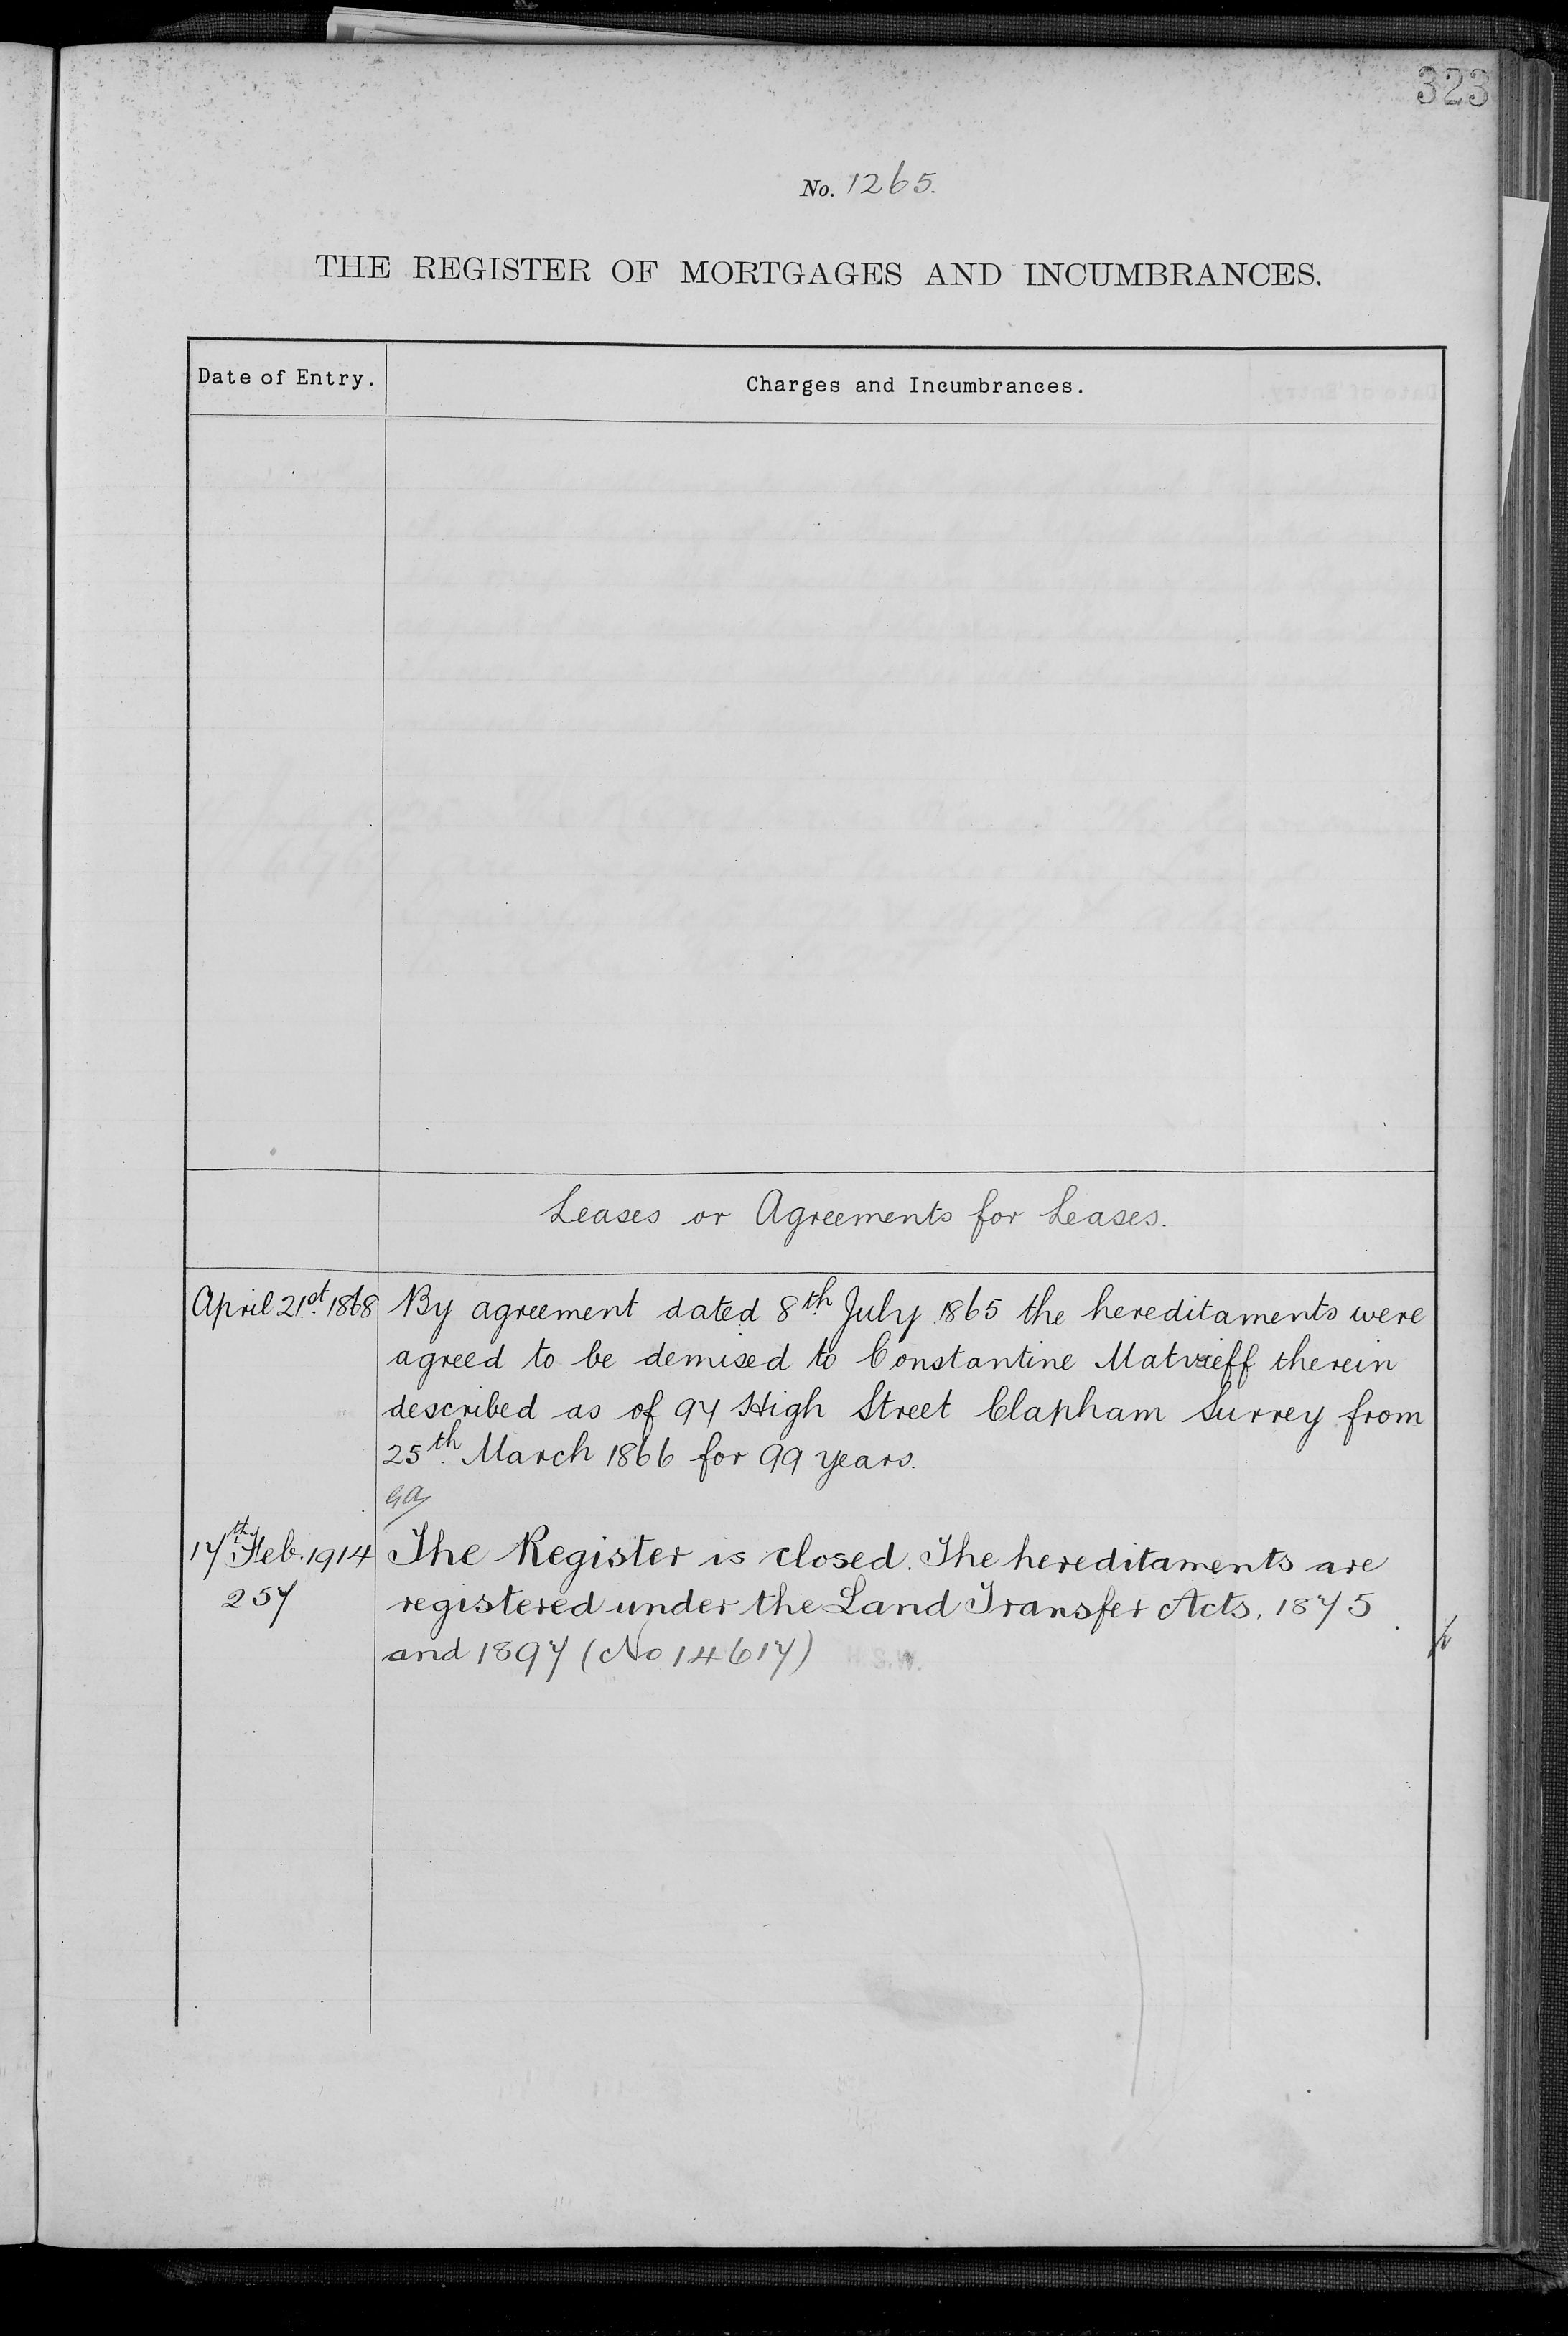 323
No. 1265.
THE REGISTER OF MORTGAGES AND INCUMBRANCES.
Date of Entry.
Charges and Incumbrances.
Leases or Agreements for Leases.
April 21st. 1868
By agreement dated 8th July 1865 the hereditaments were
agreed to be demised to Constantine Matvieff therein
described as of 97 High Street Clapham Surrey from
25th. March 1866 for 99 years.
17th Feb. 1914
The Register is closed. The hereditaments are
257
registered under the Land Transfer Acts. 1875
and 1897 (No 14617) H.S.W.